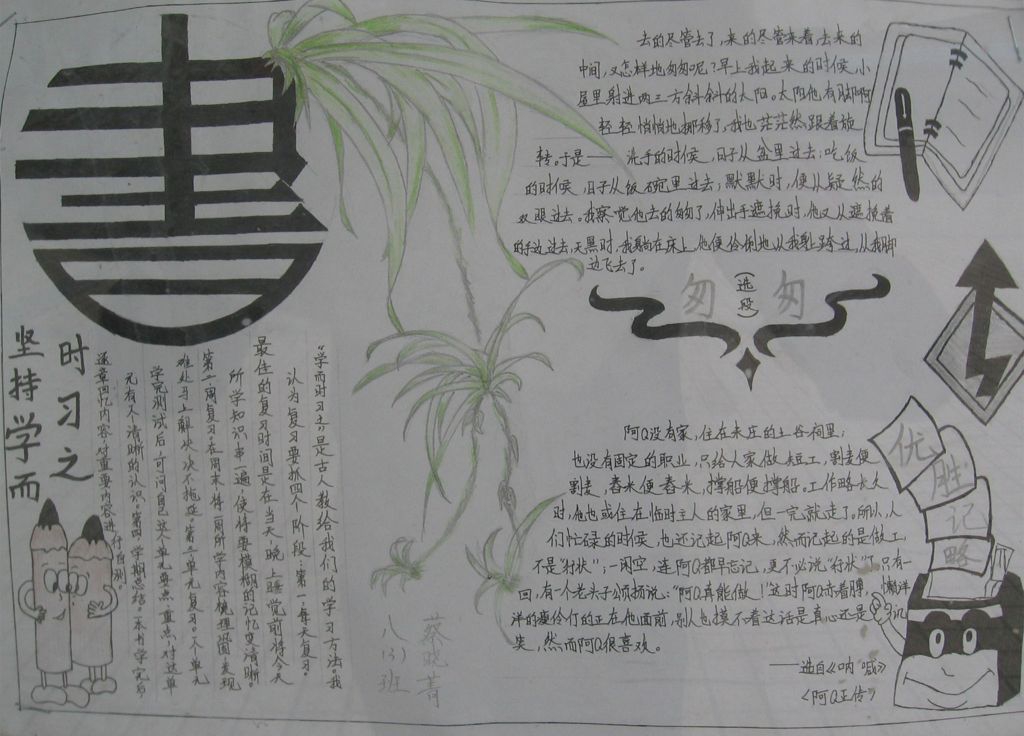 書
去的尽管去了,来的尽管来着,去来的
中间,又怎样地匆匆呢?早上我起来的时候,小
屋里射进两三方斜斜的太阳。太阳他有脚啊
轻轻悄悄地挪移了,我也茫茫然跟着旋
转。于是——洗手的时候,日子从盆里过去;吃饭
的时候,日子从饭碗里过去;默默时,便从凝然的
双眼过去。我察觉他去的匆匆了,伸出手遮挽时,他又从遮挽着
的手边过去,天黑时,我躺在床上,他便伶俐地从我身上跨过,从我脚
边飞去了。
匆匆
(选段)
坚持学而
时习之
“学而时习之”是古人教给我们的学习方法,我
认为复习要抓四个阶段:第一,每天复习。
最佳的复习时间是在当天晚上睡觉前将今天
所学知识串一遍,使将要模糊的记忆变清晰。
第二,周复习。在周末,将一周所学内容梳理巩固,发现
难处马上解决,决不拖延。第三,单元复习。一个单元
学完测试后,可问问自己这个单元要点、重点,对这单
元有个清晰的认识。第四,学期总结。一本书学完后
逐章回忆内容,对重要内容进行自测。
阿Q没有家,住在未庄的土谷祠里;
也没有固定的职业,只给人家做短工,割麦便
割麦,舂米便舂米,撑船便撑船。工作略长久
时,他也或住在临时主人的家里,但一完就走了。所以,人
们忙碌的时候,也还记起阿Q来,然而记起的是做工,
不是“行状”;一闲空,连阿Q都早忘记,更不必说“行状”了。只有一
回,有一个老头子颂扬说:“阿Q真能做!”这时阿Q赤着膊,懒洋
洋的瘦伶仃的正在他面前,别人也摸不着这话是真心还是讥
笑,然而阿Q很喜欢。
——选自《呐喊》
《阿Q正传》
优胜记略
蔡晓菁
八(3)班